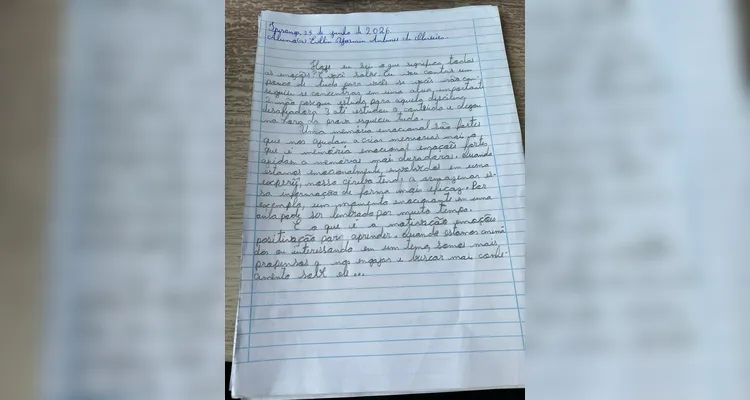 Ipiranga 25 de junho de 2026
Hoje eu sei o que significa todas
as emoções? E você sabe. Eu vou contar um
pouco de tudo para vocês se vocês não con-
seguiu se concentrar em uma aula importante
e não porque estuda para aquela disciplina
desafiadora? até estudou o conteúdo e chegou
na hora da prova esqueceu tudo.
Uma memória emocional são fortes
que nos ajudam a criar memórias mais o
que é memória emocional emoções fortes
ajudam a memórias mais duradoras, quando
estamos emocionalmente envolvidos em uma
nosso cérebro tende a armazenar es-
sa informação de forma mais eficaz. Por
exemplo, um momento emocionante em uma
aula pode ser lembrado por muito tempo.
E o que é a motivação emoções
para aprender. quando estamos anima-
dos ou interessando em um tema, somos mais
propensos a nos engajar e buscar mais conhe-
cimento sobre ele...